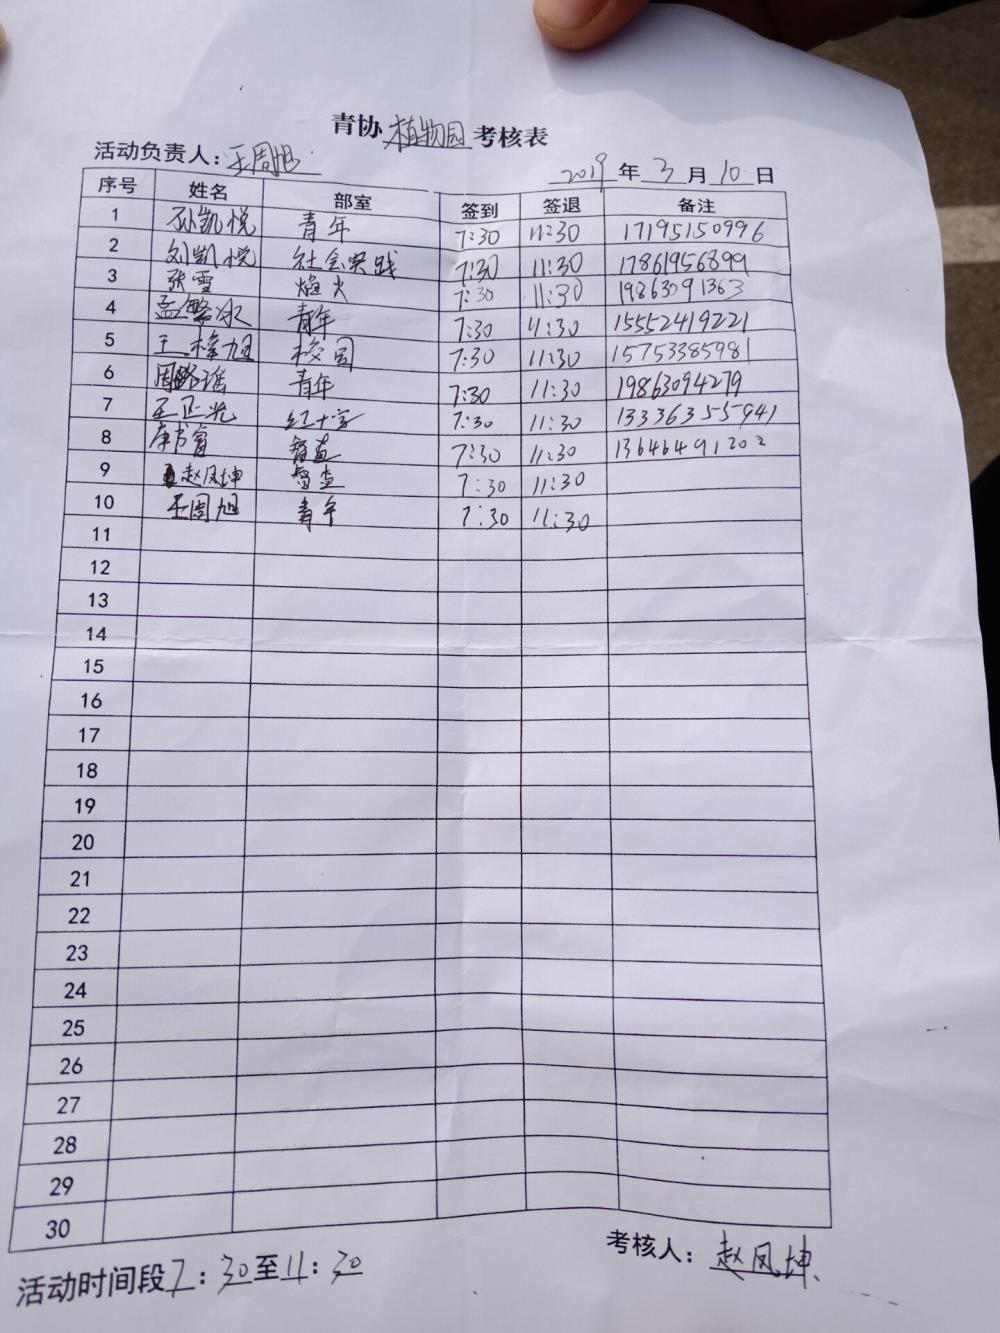 青协 植物园 考核表
活动负责人：王周旭
2019 年 3 月 10 日
序号 姓名 部室 签到 签退 备注
1 孙凯悦 青年 7:30 11:30 17195150996
2 刘凯悦 社会实践 7:30 11:30 17861956899
3 张雪 烛火 7:30 11:30 19863091363
4 孟繁冰 青年 7:30 11:30 15552419221
5 王梓旭 校园 7:30 11:30 15753385981
6 周璐瑶 青年 7:30 11:30 19863094279
7 王正光 红十字 7:30 11:30 13336355941
8 督查 7:30 11:30 13646491202
9 赵凤坤 督查 7:30 11:30
10 王周旭 青年 7:30 11:30
11
12
13
14
15
16
17
18
19
20
21
22
23
24
25
26
27
28
29
30
活动时间段 7：30 至 11：30
考核人：赵凤坤